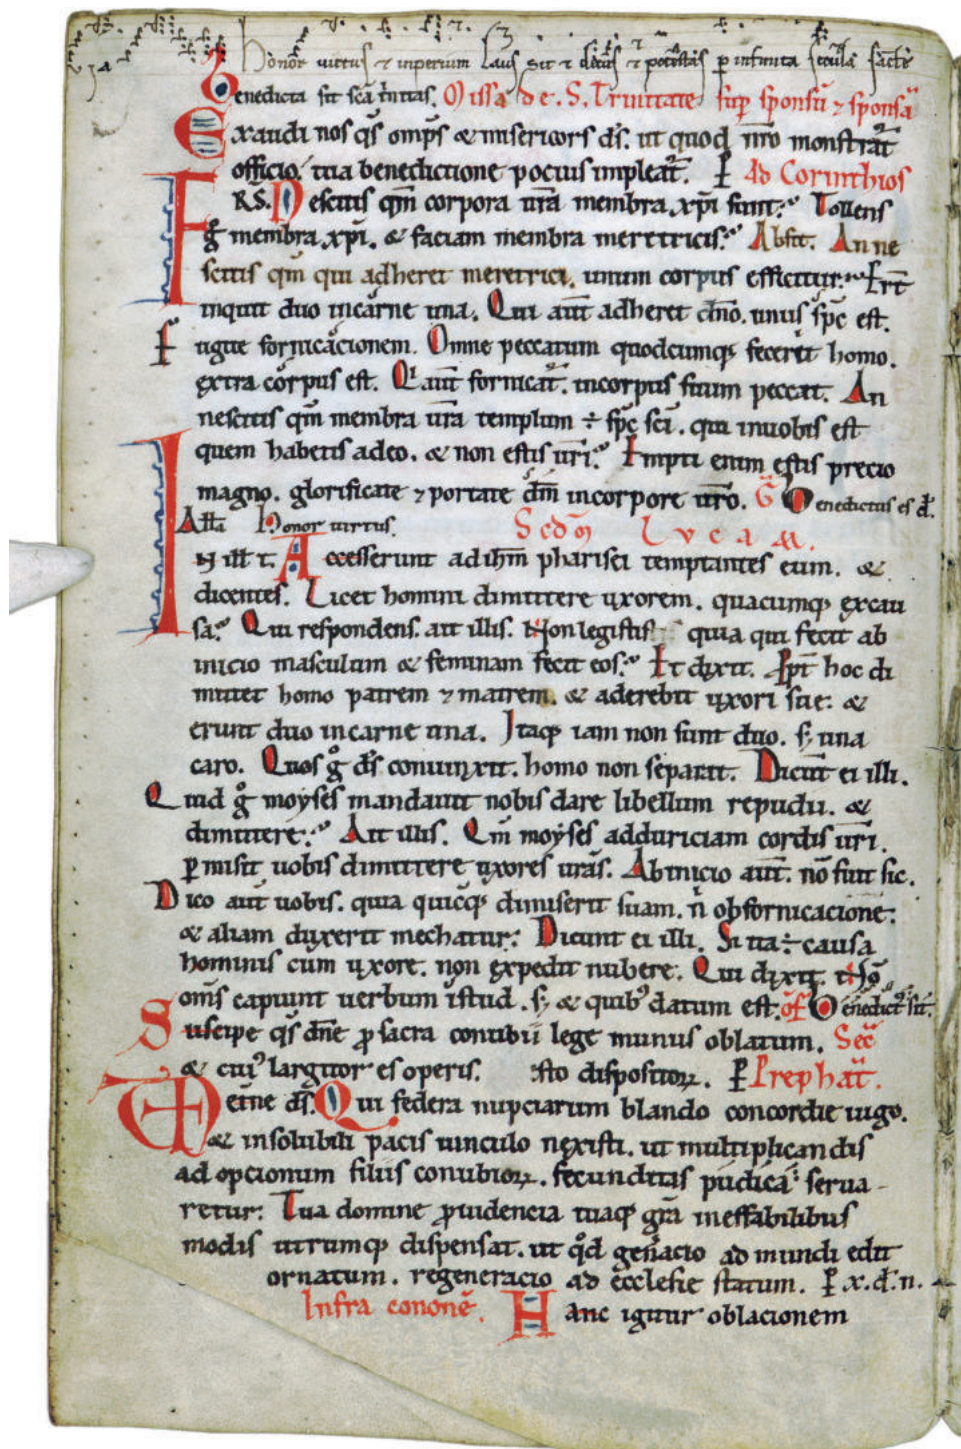 ıa Honor uirtus & inperium Laus sit & decus & potestas p infinita scłā sacłī
Benedicta sit scā tnitas. Missa de .S. Trinitate sup sponsū ⁊ sponsā
Exaudi nos qs omps & misericors ds. ut quod nro monstrat
officio. tua benedictione pocius impleat. P Ad Corinthios
FRS. Nescitis qm corpora ura membra xpi sunt. Tollens
g membra xpi. & faciam membra meretricis. Absit. An ne
scitis qm qui adheret meretrici. unum corpus efficitur. Ert
inquit duo incarne una. Qui aut adheret dno. unus spc est.
Fugite fornicacionem. Omne peccatum quodcumq; fecerit homo.
extra corpus est. Qi aut fornicat. incorpus suum peccat. An
nescitis qm membra ura templum ÷ spc sci. qui inuobis est
quem habetis adeo. & non estis uri. Empti enim estis precio
magno. glorificate ⁊ portate dm incorpore uro. G Benedictus es d.
Alla Honor uirtus. Scdm Lucam.
IN ill t. Accesserunt ad ihm pharisei temptantes eum. &
dicentes. Licet homini dimittere uxorem. quacumq; excau
sa. Qui respondens. ait illis. Non legistis quia qui fecit ab
inicio masculum & feminam fecit eos. Et dixit. Ppt hoc di
mittet homo patrem ⁊ matrem. & aderebit uxori sue: &
erunt duo incarne una. Itaq; iam non sunt duo. s; una
caro. Quos g ds coniunxit. homo non separat. Dicut ei illi.
Quid g moyses mandauit nobis dare libellum repudii. &
dimittere. Ait illis. Qm moyses adduriciam cordis uri.
pmisit uobis dimittere uxores uras. Abinicio aut. no fuit sic.
Dico aut uobis. quia quicq; dimiserit suam. n obfornicacione:
& aliam duxerit mechatur: Dicunt ei illi. Si ita ÷ causa
hominis cum uxore. non expedit nubere. Qui dixit. No
oms capiunt uerbum istud. s; & quib; datum est. of Benedict sit.
Suscipe qs dne p sacra conubii lege munus oblatum. Sec
& cui' largitor es operis. sto dispositor. P Prephat.
Eterne ds. Qui federa nupciarum blando concordie iugo.
& insolubili pacis uinculo nexisti. ut multiplicandis
ad opcionum filiis conubior. fecunditas pudica serua-
retur: Tua domine puidencia tuaq; gra ineffabilibus
modis utrumq; dispensat. ut qd genacio ad mundi edit
ornatum. regeneracio ad ecclesie statum. P x. d. n.
Infra cononē. Hanc igitur oblacionem